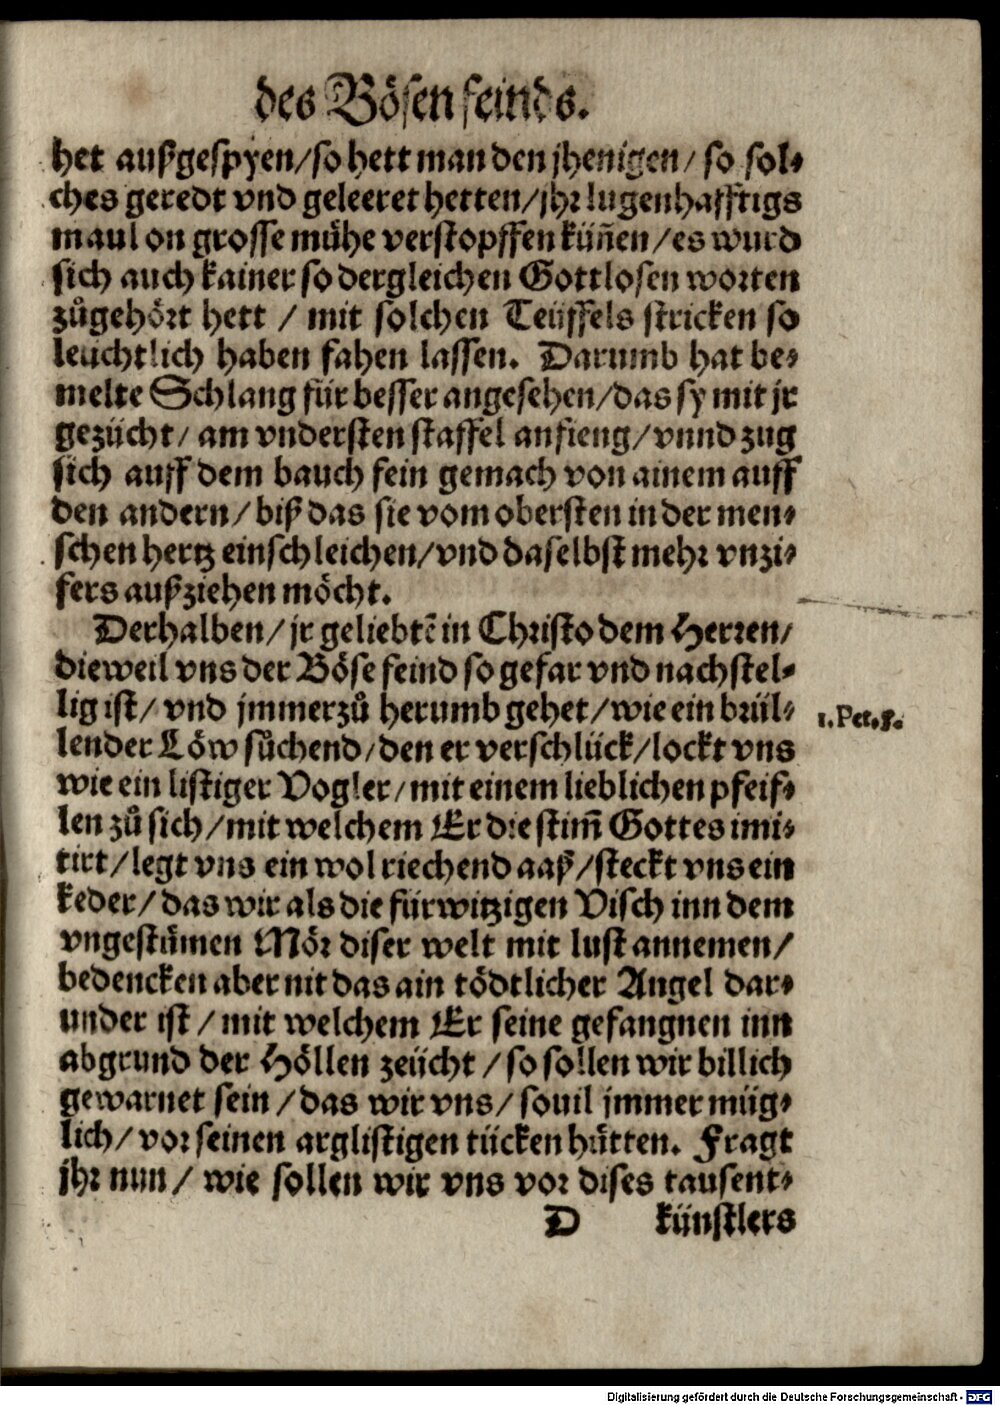 des Bösen feinds.
het außgespyen/so hett man den jhenigen/ so sol-
ches geredt vnd geleeret hetten/jhr lugenhafftigs
maul on grosse mühe verstopffen küñen/es wurd
sich auch kainer so dergleichen Gottlosen worten
zůgehört hett / mit solchen Teüffels stricken so
leuchtlich haben fahen lassen. Darumb hat be-
melte Schlang für besser angesehen/das sy mit jr
gezücht/ am vndersten staffel anfieng/vnnd zug
sich auff dem bauch fein gemach von ainem auff
den andern/ biß das sie vom obersten in der men-
schen hertz einschleichen/vnd daselbst mehr vnzi-
fers außziehen möcht.
Derhalben/ jr geliebtē in Christo dem Herren/
dieweil vns der Böse feind so gefar vnd nachstel-
lig ist/ vnd jmmerzů herumb gehet/wie ein brül-
1. Pet. 5.
lender Löw sůchend/den er verschlück/lockt vns
wie ein listiger Vogler/mit einem lieblichen pfeif-
len zů sich/mit welchem Er die stim̃ Gottes imi-
tirt/legt vns ein wol riechend aaß/steckt vns ein
keder/ das wir als die fürwitzigen Visch inn dem
vngestümen Mör diser welt mit lust annemen/
bedencken aber nit das ain tödtlicher Angel dar-
under ist / mit welchem Er seine gefangnen inn
abgrund der Höllen zeücht / so sollen wir billich
gewarnet sein / das wir vns/ souil jmmer müg-
lich/ vor seinen arglistigen tücken hütten. Fragt
jhr nun / wie sollen wir vns vor dises tausent-
D künstlers
Digitalisierung gefördert durch die Deutsche Forschungsgemeinschaft - DFG